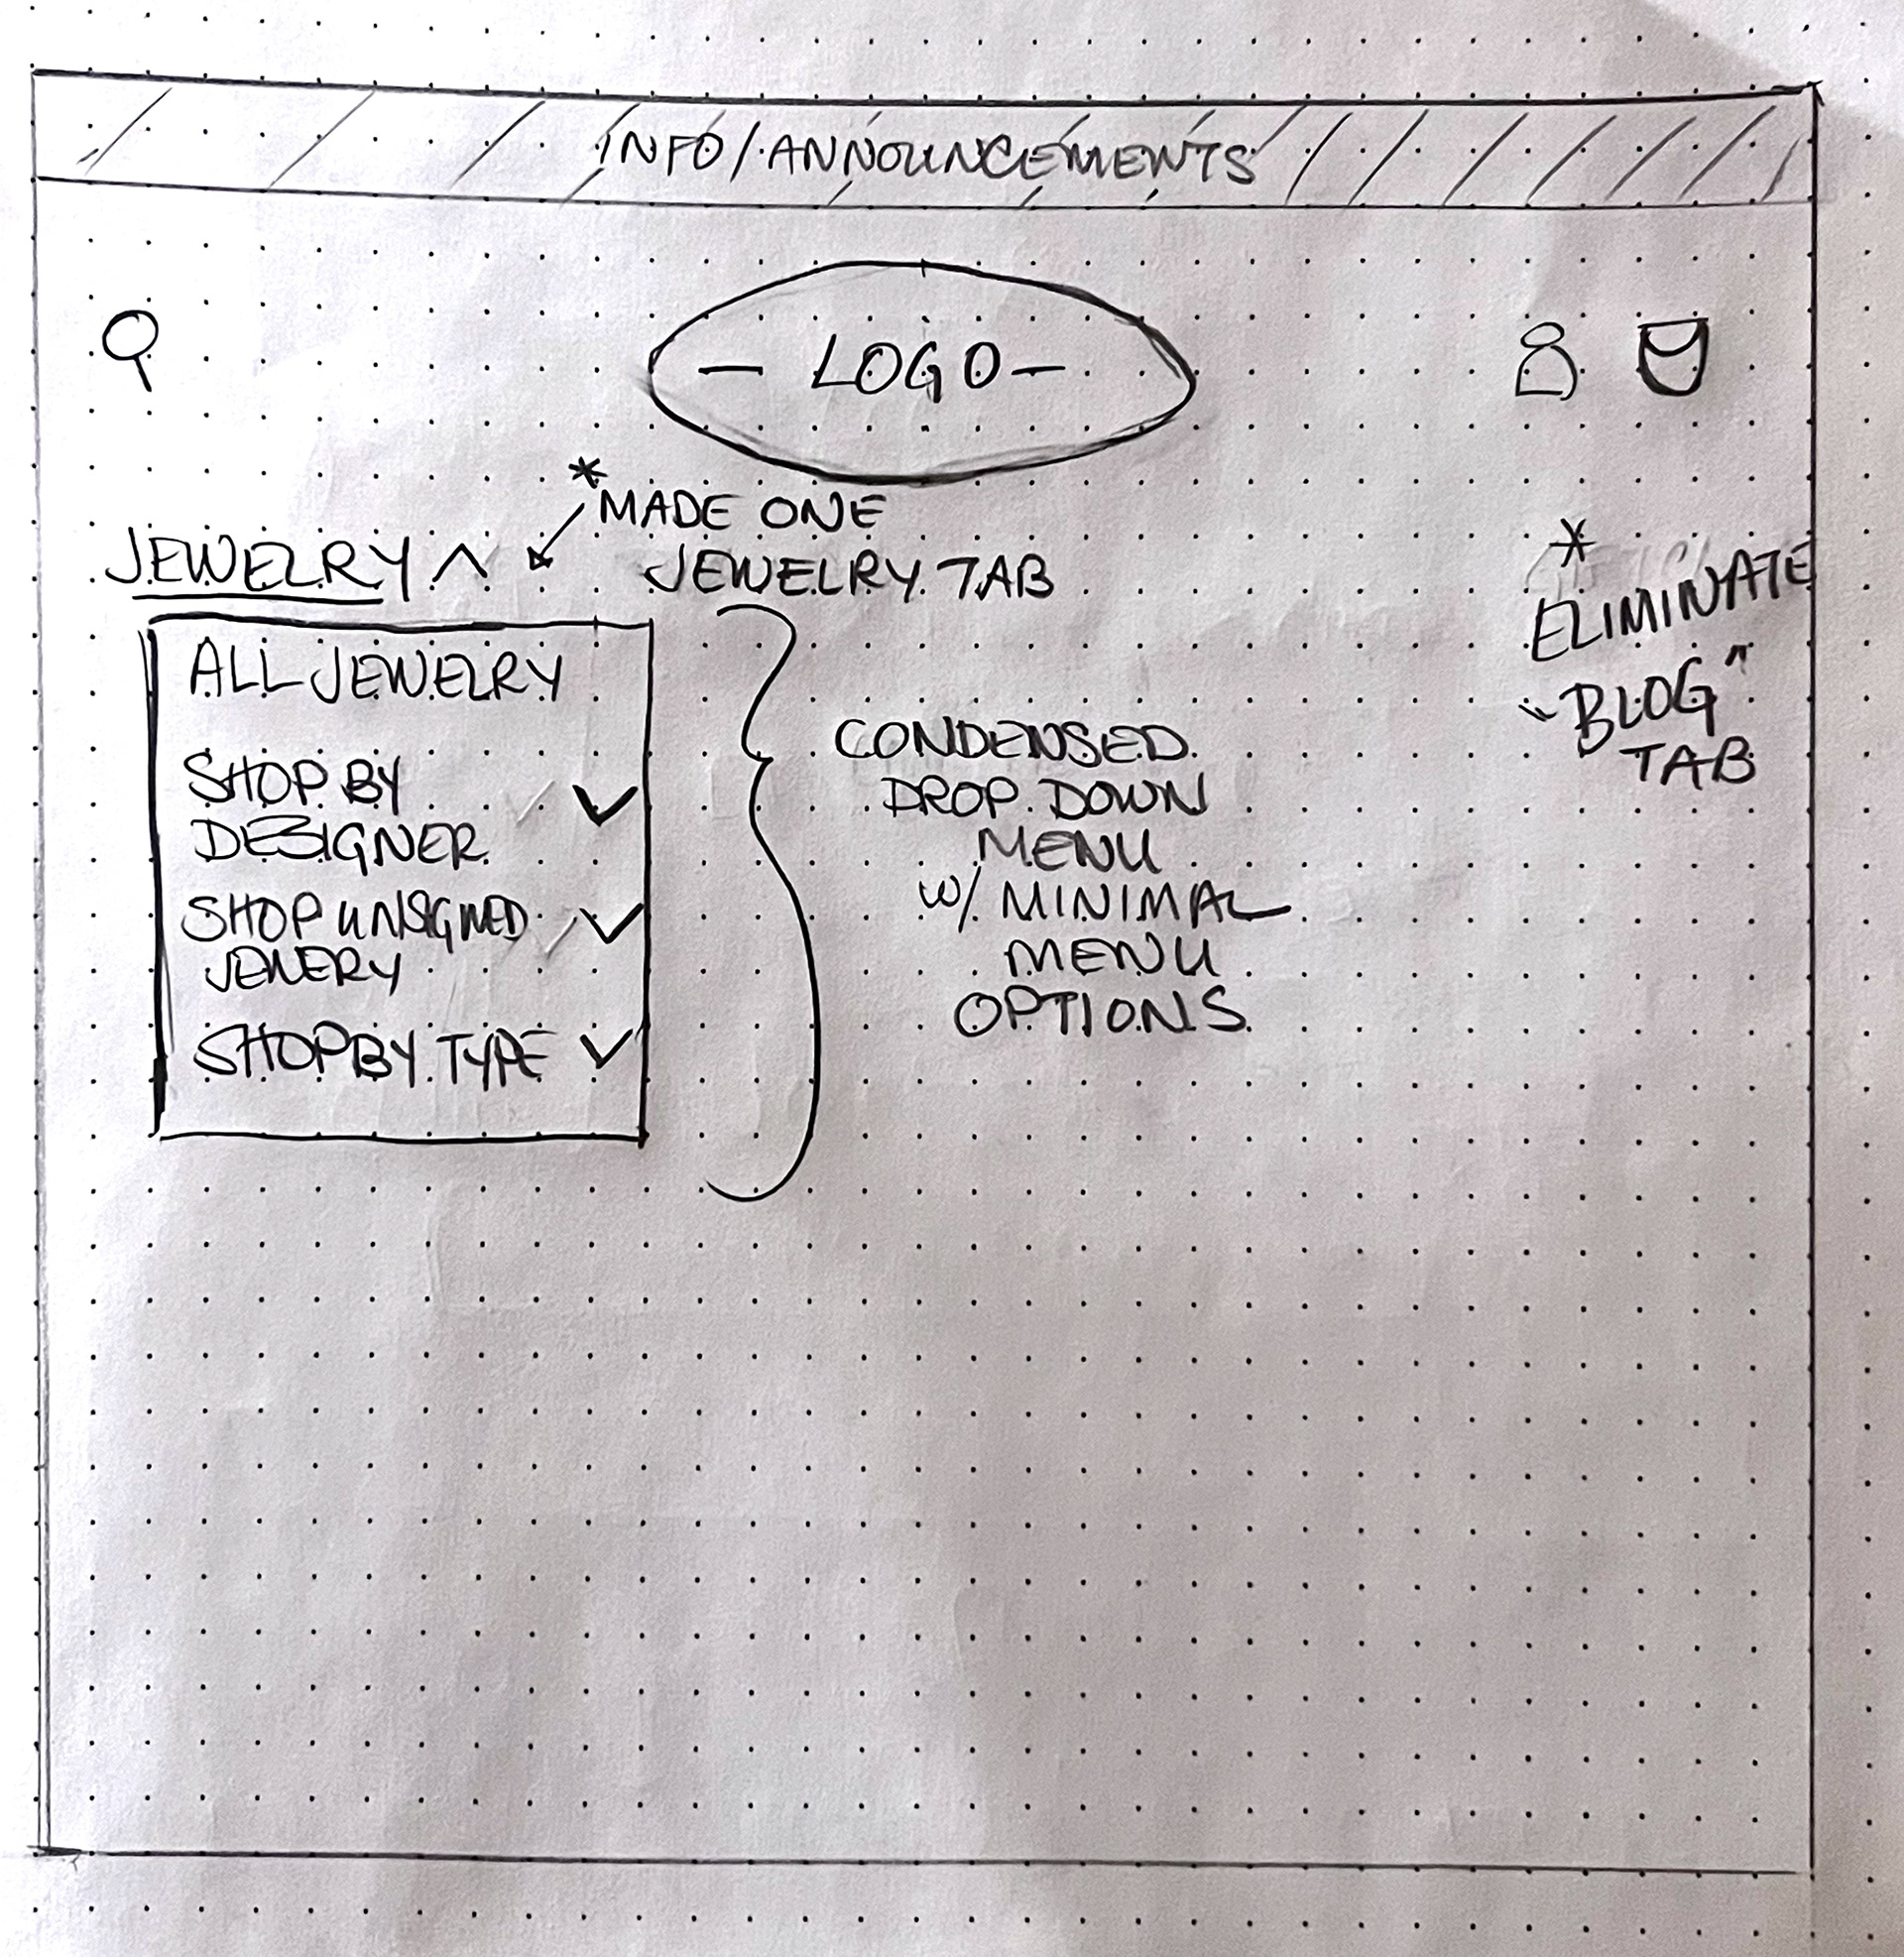 INFO/ANNOUNCEMENTS
— LOGO —
* MADE ONE
JEWELRY TAB
JEWELRY
*
ELIMINATE
"BLOG"
TAB
ALL JEWELRY
SHOP BY
DESIGNER
SHOP UNSIGNED
JEWERY
SHOP BY TYPE
CONDENSED
DROP DOWN
MENU
W/ MINIMAL
MENU
OPTIONS